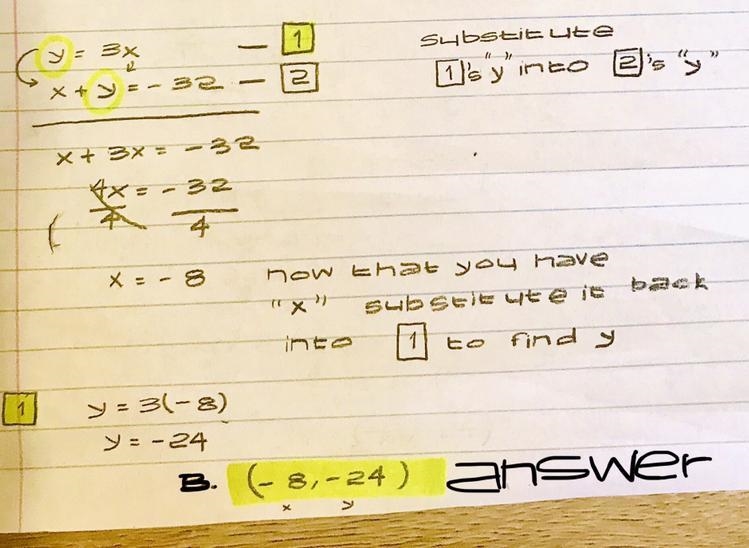 y = 3x — 1 substitute
x + y = - 32 — 2 1's "y" into 2's "y"
x + 3x = - 32
4x = - 32
4 4
x = - 8 now that you have
"x" substitute it back
into 1 to find y
1 y = 3(-8)
y = -24
B. (- 8, -24) answer
x y